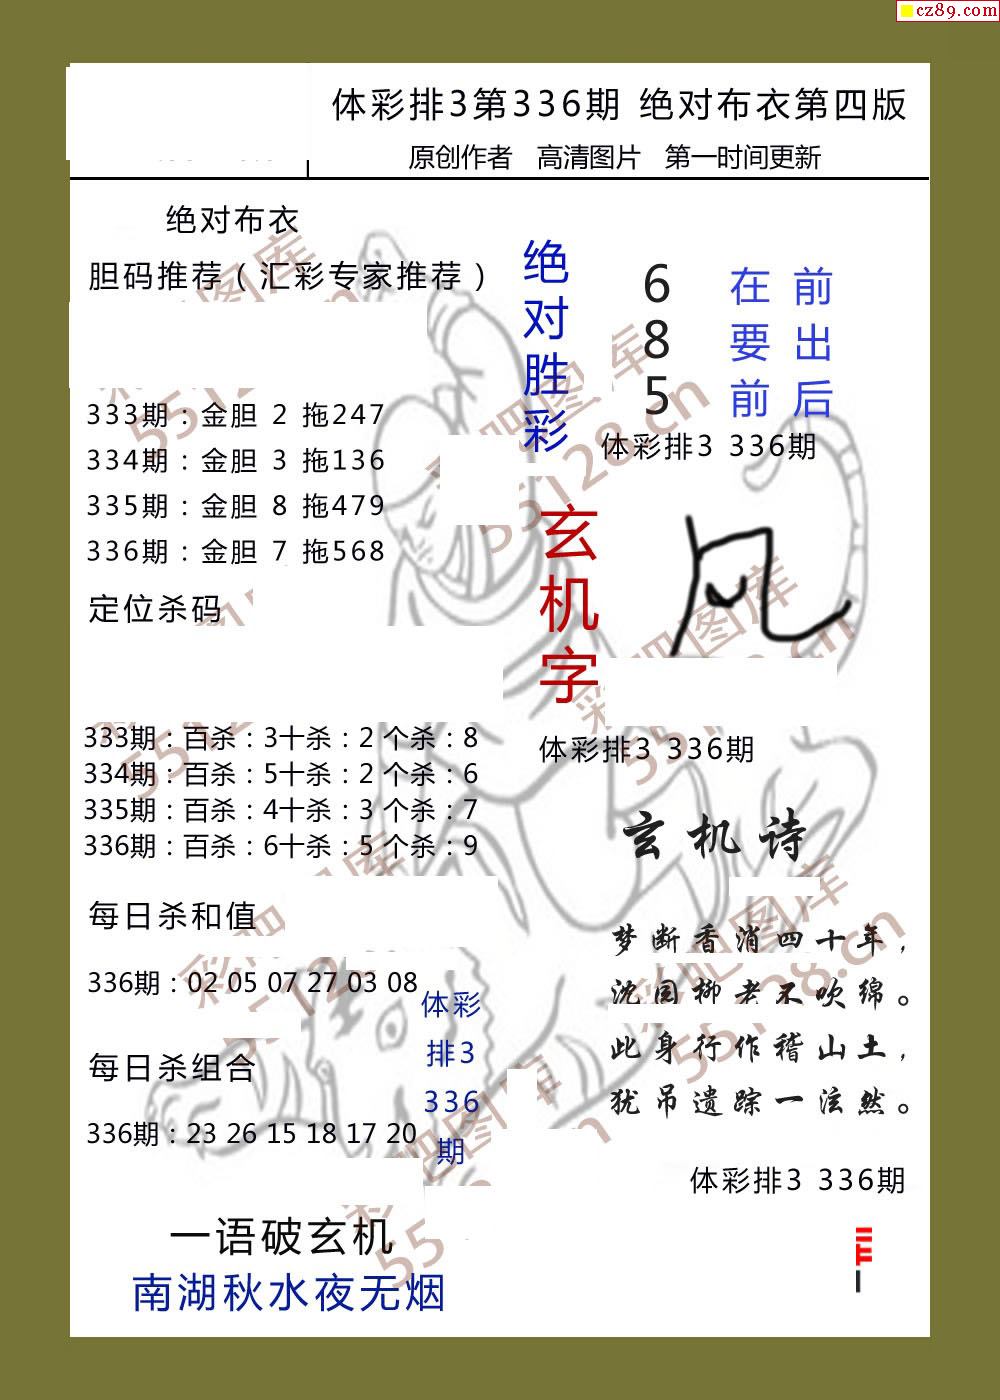 cz89.com
体彩排3第336期 绝对布衣第四版
原创作者 高清图片 第一时间更新
绝对布衣
胆码推荐（汇彩专家推荐）
333期：金胆 2 拖247
334期：金胆 3 拖136
335期：金胆 8 拖479
336期：金胆 7 拖568
定位杀码
333期：百杀：3十杀：2 个杀：8
334期：百杀：5十杀：2 个杀：6
335期：百杀：4十杀：3 个杀：7
336期：百杀：6十杀：5 个杀：9
每日杀和值
336期：02 05 07 27 03 08
每日杀组合
336期：23 26 15 18 17 20
体彩
排3
336
期
一语破玄机
南湖秋水夜无烟
绝对胜彩
6 在 前
8 要 出
5 前 后
体彩排3 336期
玄机字
体彩排3 336期
玄机诗
梦断香消四十年，
沈园柳老不吹绵。
此身行作稽山土，
犹吊遗踪一泫然。
体彩排3 336期
彩吧图库
55128.cn